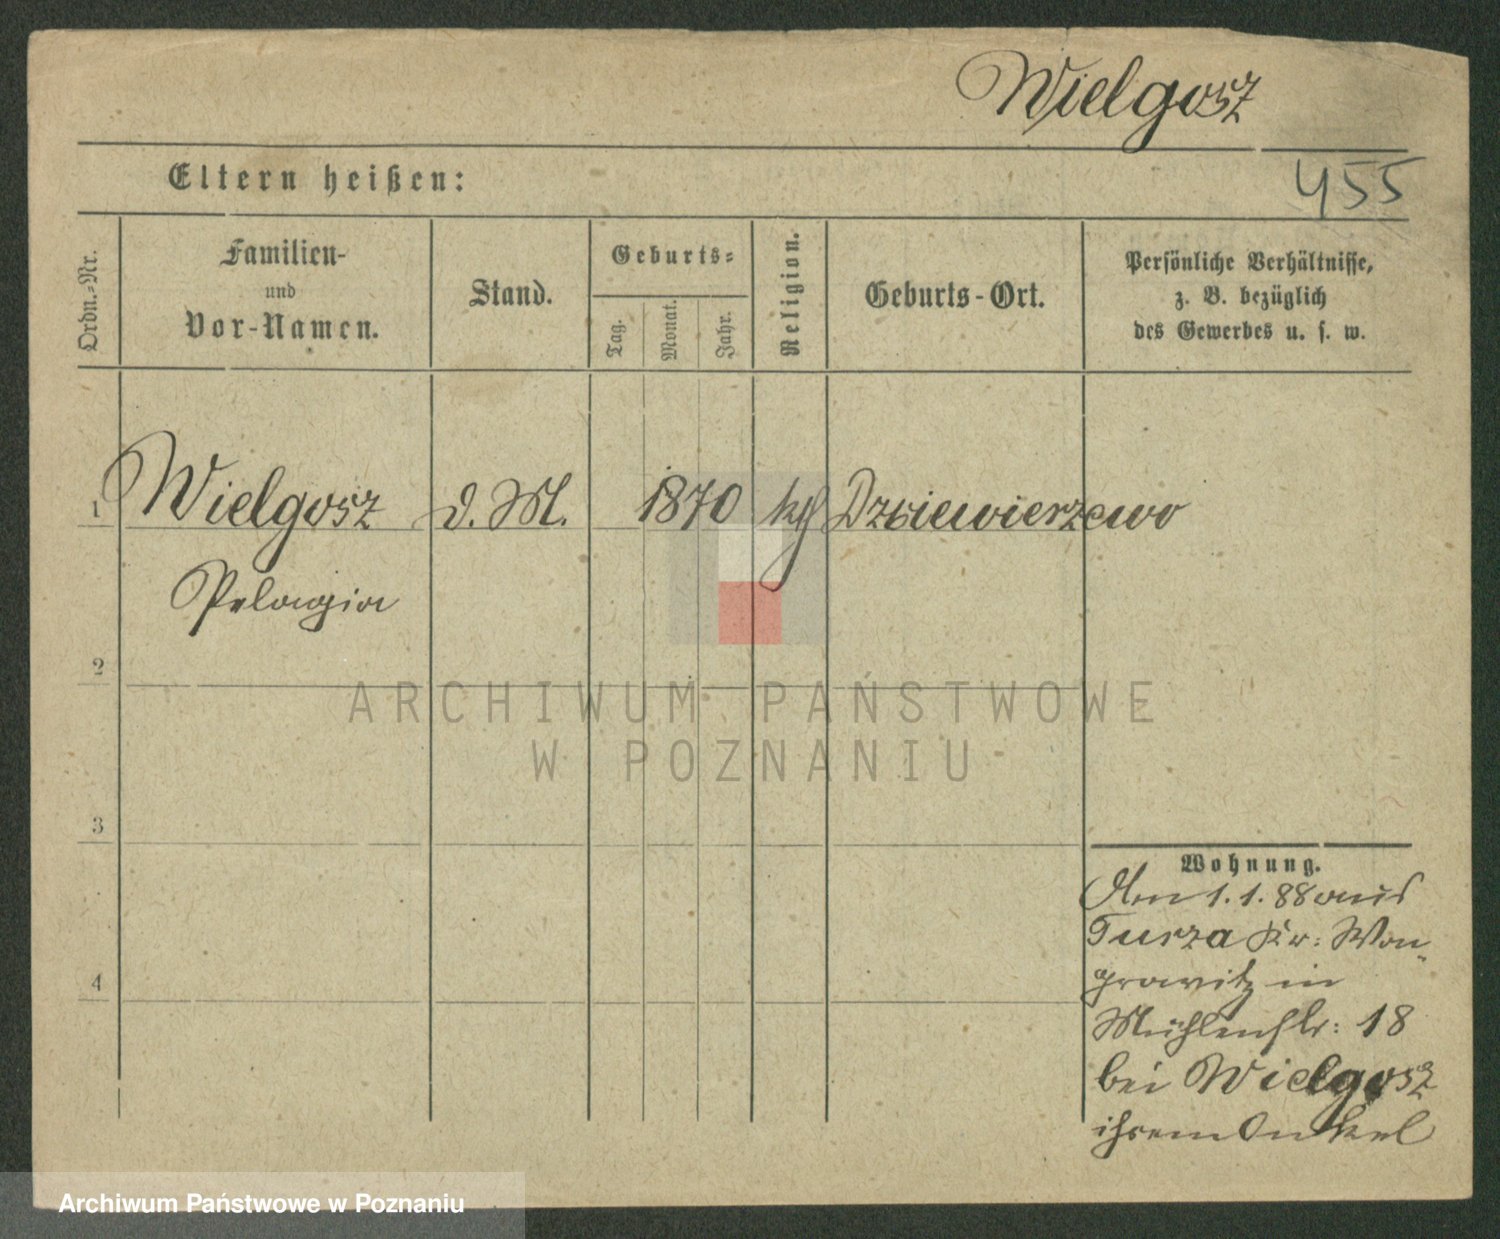 Wielgosz
Eltern heißen:
455
Ordn.-Nr.
Familien-
und
Vor-Namen.
Stand.
Geburts-
Tag.
Monat.
Jahr.
Religion.
Geburts-Ort.
Persönliche Verhältnisse,
z. B. bezüglich
des Gewerbes u. s. w.
1 Wielgosz d. M. 1870 kg Dziewierzewo
Pelagia
2
3
4
Wohnung.
Am 1.1.88 aus
Turza Kr: Won-
growitz in
Mühlenstr: 18
bei Wielgosz
ihrem Onkel
ARCHIWUM PAŃSTWOWE
W POZNANIU
Archiwum Państwowe w Poznaniu